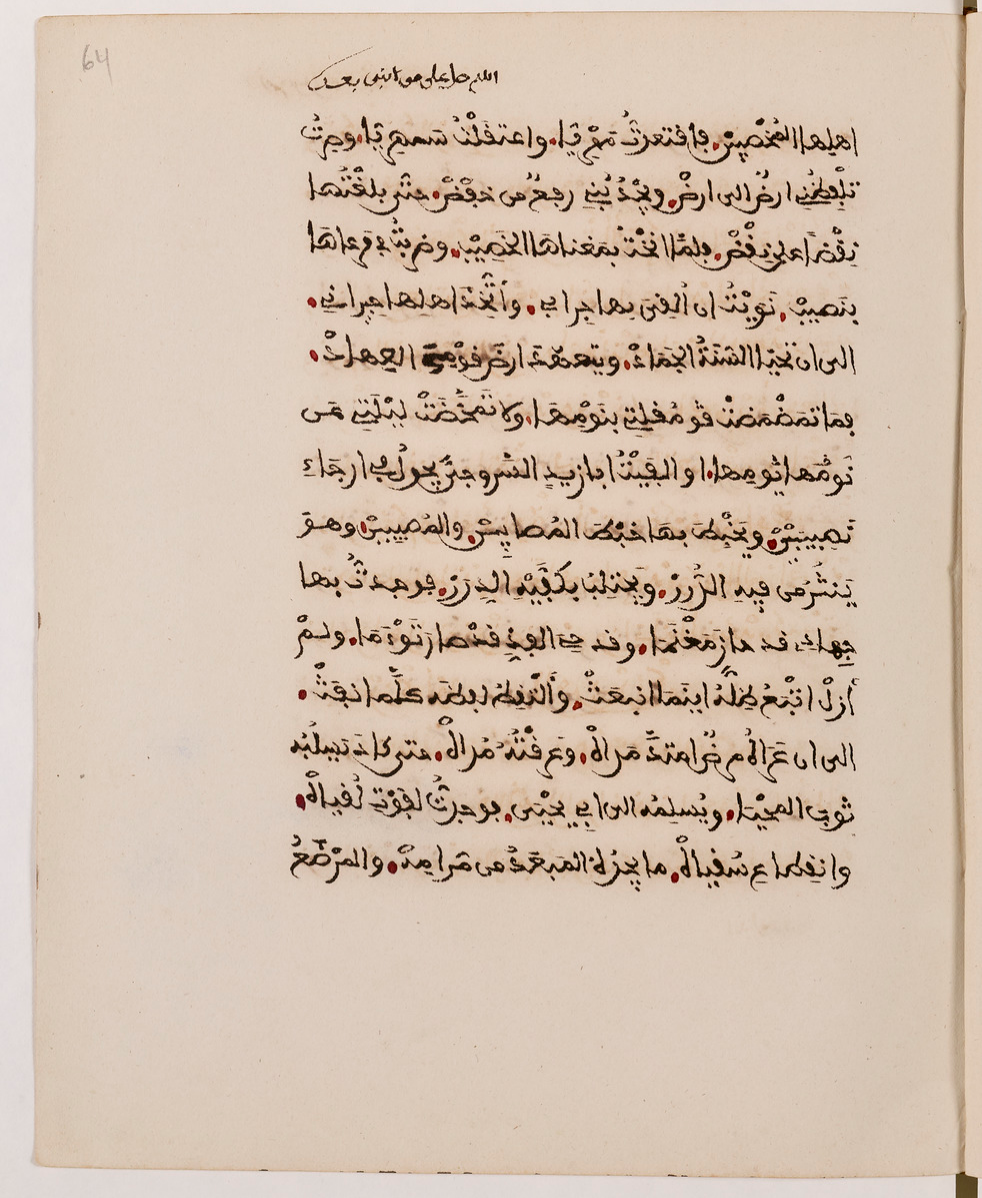 اللهم صل على من لا نبي بعده
اهلها المخصبين. فاقتعدتُ مهريا. واعتقلتُ سمهريا. وسرتُ
تلفظني ارضٌ الى ارضْ. ويجذُبُني رفعٌ من خفضْ. حتى بلغتُها
نِقْضا على نِقْضْ. فلما انختُ بمغناها الخصيبْ. وضربتُ في مرعاها
بنصيبْ. نويتُ ان اُلقى بها جرانى. واَتَّخِذَ اهلها جيرانى.
الى ان تحيا السَّنةُ الجمادْ. وتتعهّدَ ارضَ قومي العِهادْ.
فما تمضمضتْ مُقلتى بنومها. ولا تمخَّضَتْ ليلتى عن
يومها. او الفيتُ ابا زيدٍ السَّروجىَّ يجولُ في ارجاء
نصيبينْ. ويخبِط بها خبْط المُصابينْ. والمُصيبينْ. وهو
يَنثُرُ من فِيهِ الدُّررْ. ويحتلبُ بكفَّيْهِ الدِررْ. فوجدتُ بها
جِهادي قد حازَ مَغْنَما. وقدحى الفذِّ قدْ صارَ تَوْءَما. ولمْ
أزلْ اتْبَعُ ظلَّهُ اينما انبعثْ. وأَلتقِطُ لفظه كلَّما نفثْ.
الى ان عَراهُ مرضٌ امتدَّ مَداهْ. وعَرقتْهُ مُداهْ. حتى كاد يسلُبُه
ثوبَ المحْيَا. ويُسلمُه الى ابي يحْيَى. فوجدتُ لفوْتِ لُقياهْ.
وانقطاع سُقياهْ. ما يجدُهُ المبعَدُ عن مَرامِهْ. والمرْضَعُ